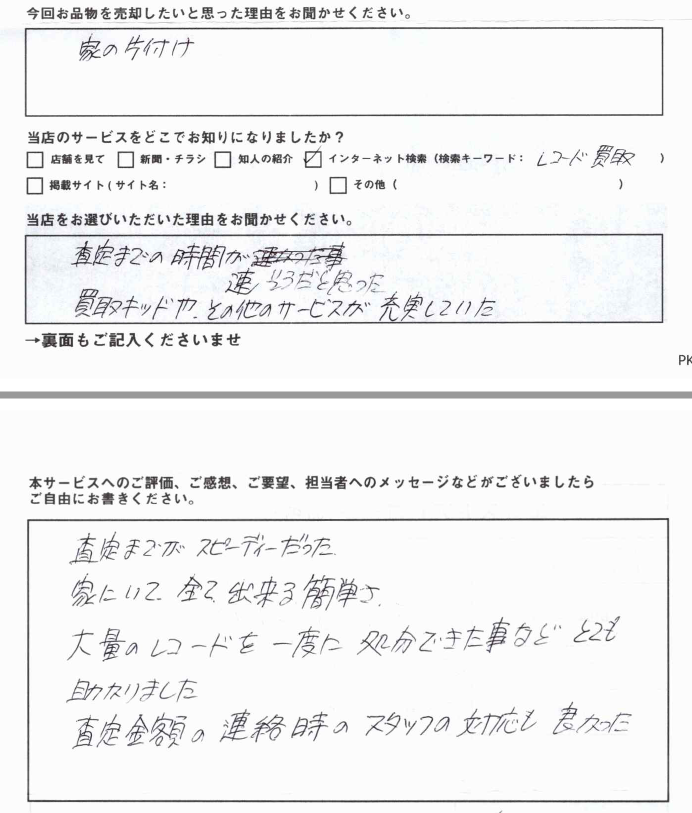 今回お品物を売却したいと思った理由をお聞かせください。
家の片付け
当店のサービスをどこでお知りになりましたか?
□ 店舗を見て □ 新聞・チラシ □ 知人の紹介 ☑ インターネット検索(検索キーワード: レコード買取 )
□ 掲載サイト(サイト名: ) □ その他( )
当店をお選びいただいた理由をお聞かせください。
査定までの時間が
速そうだと思った
買取キッドや、その他のサービスが充実していた
→裏面もご記入くださいませ
PK
本サービスへのご評価、ご感想、ご要望、担当者へのメッセージなどがございましたら
ご自由にお書きください。
査定までが スピーディーだった
家にいて、全て出来る簡単さ、
大量のレコードを一度に処分できた事など とても
助かりました
査定金額の連絡時のスタッフの対応も良かった